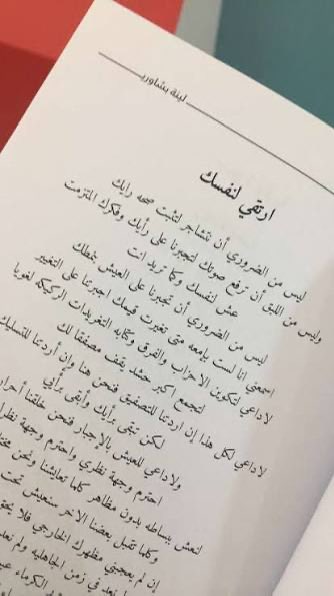 لينة بشاوري
ارتقي لنفسك
ليس من الضروري أن نتشاجر لتثبت صحه رايك
وليس من اللبق أن ترفع صوتك لتجبرنا على رأيك وفكرك المتزمت
عش لنفسك وكما تريد انت
ليس من الضروري أن تجبرنا على العيش بخطك
اسمعني انا لست بإمعه متى تغيرت قيمك اجبرتنا على التغيير
لا داعي لتكوين الاحزاب والفرق وكتابه التغريدات الركيكه لغويا
لتجمع اكبر حشد يقف مصفقا لك
لا داعي لكل هذا إن اردتنا للتصفيق فنحن هنا وإن أردتنا للتسليك
لكن تبقى برأيك وأبقى برأيي
ولا داعي للعيش بالإجبار فنحن خلقنا أحرار
احترم وجهة نظري واحترم وجهة نظرا
لنعش ببساطه بدون مظاهر كلما تعايشنا ونحن
وكلما تقبل بعضنا الآخر سنعيش تحت
إن لم يعجبني مظهرك الخارجي فلا يحق
نعد في زمن الجاهليه ولم نعد
الكرماء